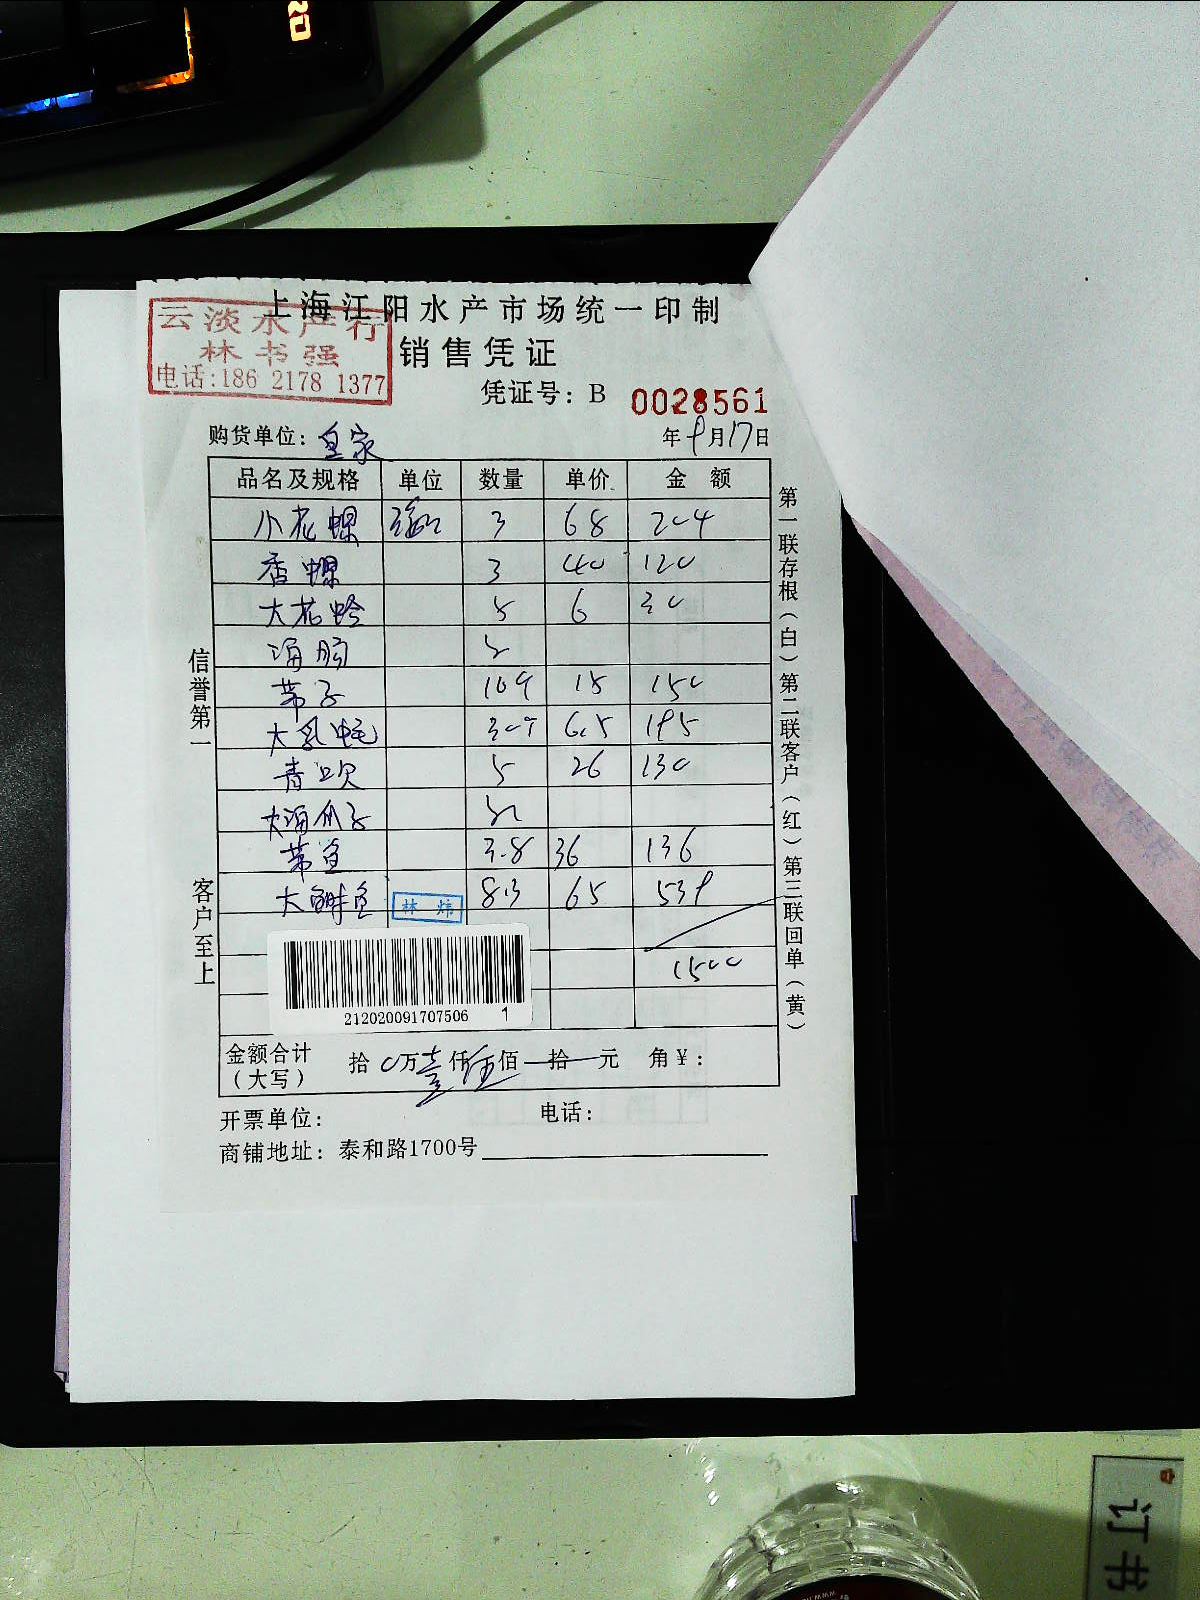 上海江阳水产市场统一印制
云淡水产行
林书强
电话:186 2178 1377
销售凭证
凭证号: B 0028561
购货单位: 皇家 年 9月17日
品名及规格 单位 数量 单价 金 额
小花螺 3 68 204
香螺 3 40 120
大花蛤 5 6 30
海肠
带子 10个 15 150
大乳蚝 30个 6.5 195
青口 5 26 130
大海瓜子
带鱼 3.8 36 136
大鲜鱼 8.3 65 539
林 炜
1500
212020091707506 1
金额合计
(大写) 拾 0万壹仟伍佰 拾 元 角¥:
开票单位: 电话:
商铺地址: 泰和路1700号
信誉第一
客户至上
第一联存根(白)第二联客户(红)第三联回单(黄)
订书